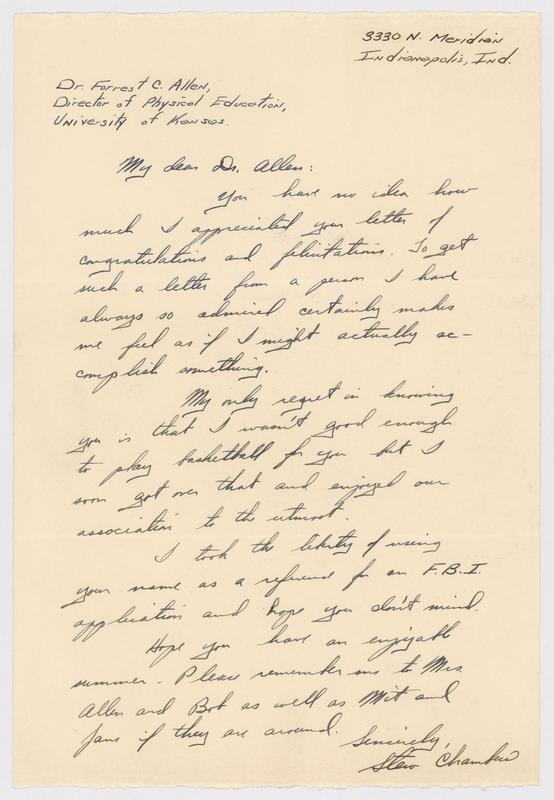 3330 N. Meridian
Indianapolis, Ind.
Dr. Forrest C. Allen,
Director of Physical Education,
University of Kansas.
My dear Dr. Allen:
You have no idea how
much I appreciated your letter of
congratulations and felicitations. To get
such a letter from a person I have
always so admired certainly makes
me feel as if I might actually ac-
complish something.
My only regret in knowing
you is that I wasn't good enough
to play basketball for you but I
soon got over that and enjoyed our
association to the utmost.
I took the liberty of using
your name as a reference for an F.B.I.
application and hope you don't mind.
Hope you have an enjoyable
summer. Please remember me to Mrs.
Allen and Bob as well as Mit and
Jane if they are around.
Sincerely,
Stew Chambers